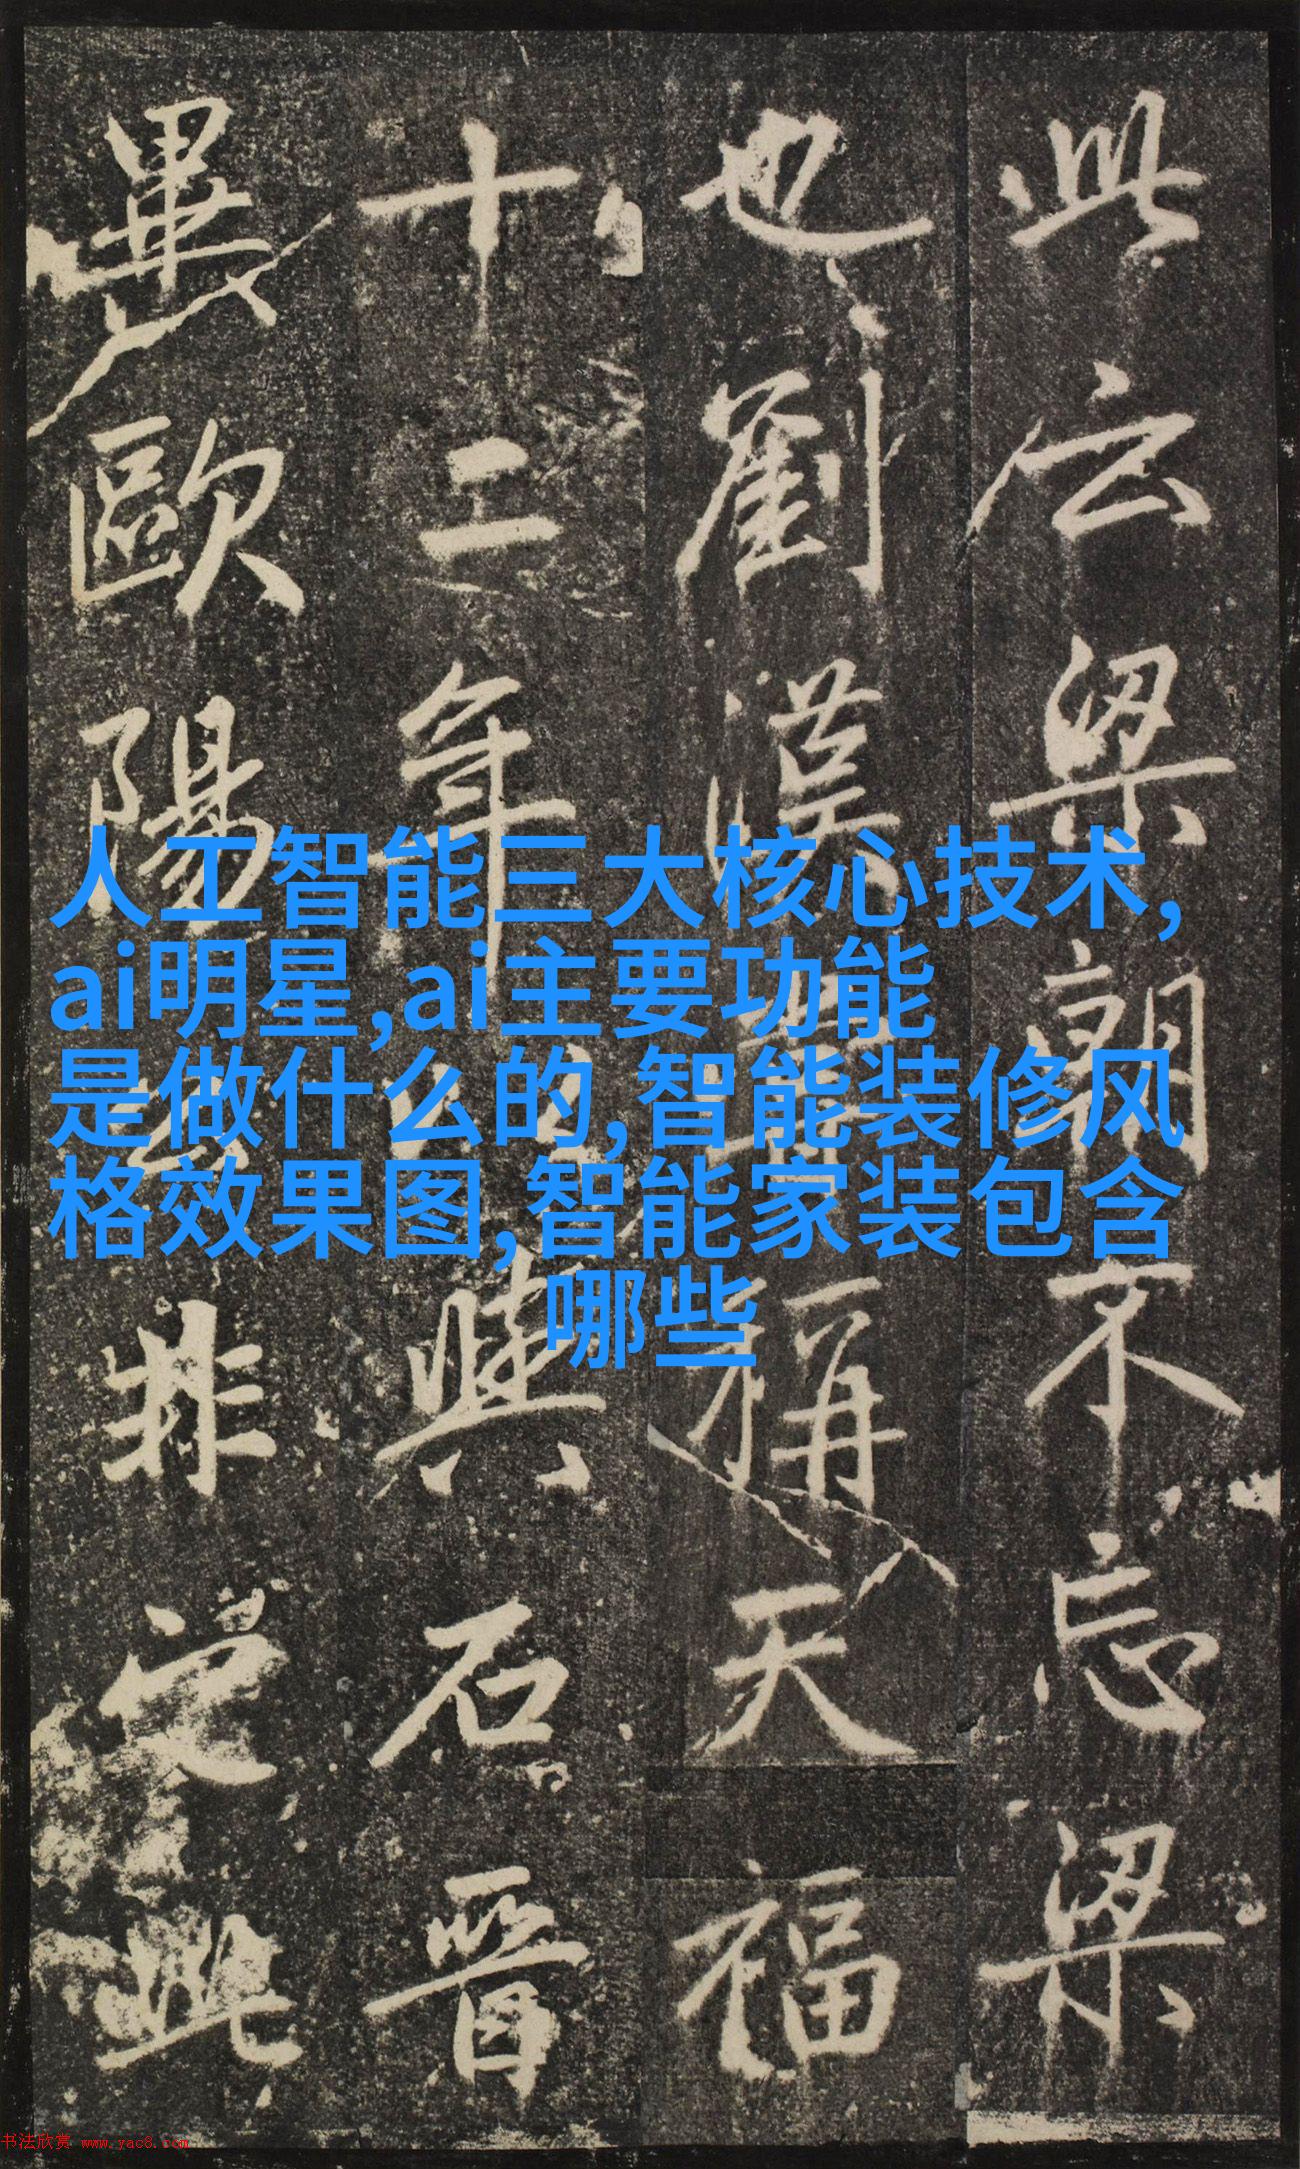 此云梁朝不忘梁
也劉漢稱天福
十二年與石晉
畢歐陽非此
人工智能三大核心技术,
ai明星,ai主要功能
是做什么的,智能装修风
格效果图,智能家装包含
哪些
书法欣赏 www.yac8.com